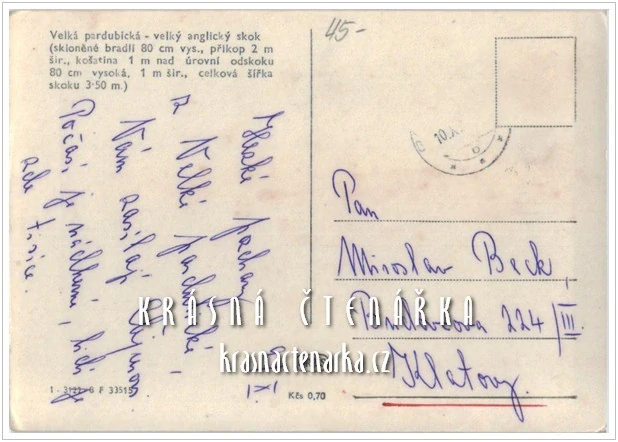 45-
Velká pardubická - velký anglický skok
(skloněné bradlí 80 cm vys., příkop 2 m
šir., košatina 1 m nad úrovní odskoku
80 cm vysoká, 1 m šir., celková šířka
skoku 3·50 m.)
Hezké pozdravy
z Velké pardubické
Vám zasílají
Počasí je nádherné, lidí je
zde tisíce.
10.X
Pan
Miroslav Beck
224/III.
Klatovy.
KRÁSNÁ ČTENÁŘKA
krasnactenarka.cz
Kčs 0,70